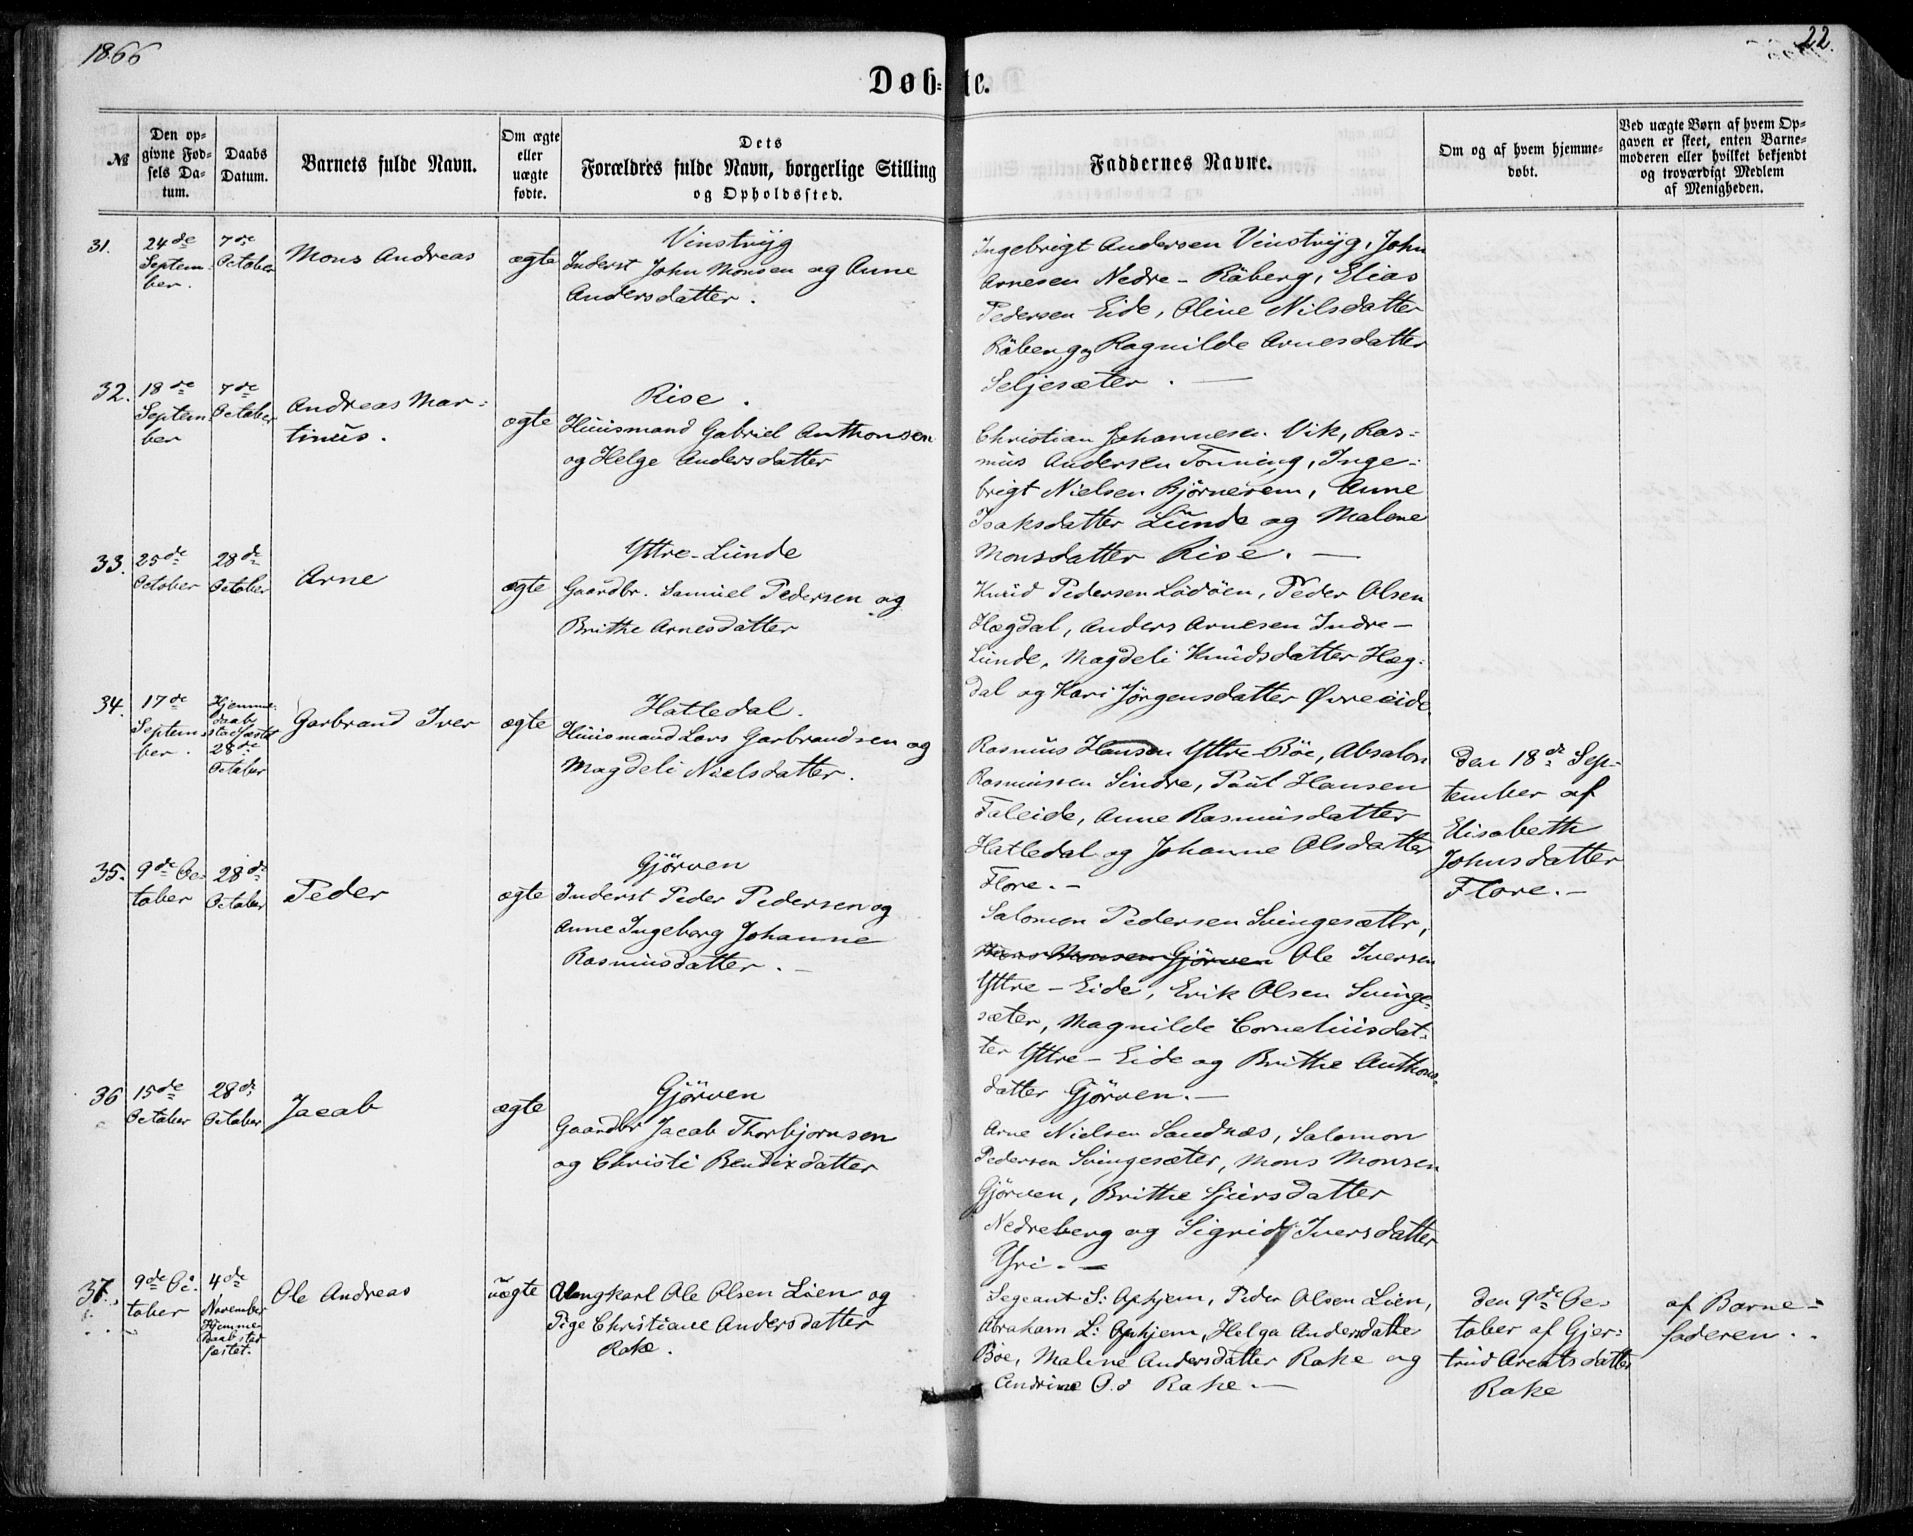 1866
22.
Døb=te.
№
Den op=
givne Fød=
sels Da=
tum.
Daabs
Datum.
Barnets fulde Navn.
Om ægte
eller
uægte
fødte.
Dets
Forældres fulde Navn, borgerlige Stilling
og Opholdssted.
Faddernes Navne.
Om og af hvem hjemme=
døbt.
Ved uægte Børn af hvem Op=
gaven er skeet, enten Barne=
moderen eller hvilket bekjendt
og troværdigt Medlem
af Menigheden.
31.
24de
Septem-
ber.
7de
October
Mons Andreas
ægte
Vinstryg
Inderst John Monsen og Anne
Andersdatter.
Ingebrigt Andersen Vinstryg, John
Arnesen Nedre-Råberg, Elias
Pedersen Eide, Oline Nilsdatter
Råberg og Ragnilde Arnesdatter
Seljesæter. —
32.
18de
Septem
ber
7de
October
Andreas Mar=
tinus.
ægte
Rise.
Huusmand Gabriel Anthonsen
og Helge Andersdatter
Christian Johannesen Vik, Ras=
mus Andersen Tonning, Inge=
brigt Nielsen Bjørnesem, Anne
Isaksdatter Lunde og Malene
Monsdatter Rise. —
33.
25de
October
28de
October
Arne
ægte
Yttre-Lunde
Gaardbr. Samuel Pedersen og
Brithe Arnesdatter
Knud Pedersen Lødøen, Peder Olsen
Hægdal, Anders Arnesen Indre-
Lunde, Magdeli Knudsdatter Hæg=
dal og Kari Jørgensdatter Øvreeide
34.
17de
Septem
ber.
Hjemme-
daab
stadfæstet
28de
October
Garbrand Iver
ægte
Hatledal.
Huusmand Lars Garbrandsen og
Magdeli Nielsdatter.
Rasmus Hansen Yttre-Bøe, Absalon
Rasmussen Sindre, Paul Hansen
Faleide, Anne Rasmusdatter
Hatledal og Johanne Olsdatter
Flore. -
Den 18de Sep-
tember af
Elisabeth
Johnsdatter
Flore. -
35.
9de Oc-
tober
28de
October
Peder
ægte
Gjørven
Inderst Peder Pedersen og
Anne Ingeborg Johanne
Rasmusdatter. -
Salomon Pedersen Svingesæter,
Mons Monsen Gjørven Ole Iversen
Yttre-Eide, Erik Olsen Svinge-
sæter, Magnilde Corneliusdat-
ter Yttre-Eide og Brithe Anthons-
datter Gjørven. -
36
15de
October
28de
October
Jacob
ægte
Gjørven
Gaardbr Jacob Thorbjørnsen
og Christi Bendixdatter
Arne Nielsen Sandnæs, Salomon
Pedersen Svingesæter, Mons Monsen
Gjørven, Brithe Sjursdatter
Nedreberg og Sigrid Iversdatter
Yri. -
37.
9de Oc-
tober
4de
November
Hjemme-
daab stad
fæstet.
Ole Andreas
uægte
Ungkarl Ole Olsen Lien og
Pige Christiane Andersdatter
Rake.
Segeant S: Aphjem, Peder Olsen Lien,
Abraham L: Aphjem, Helga Andersdatter
Bøe, Malene Andersdatter Rake og
Andrine O.d Rake. —
Den 9de Oc-
tober af Gjer-
trud Arentsdatter
Rake
af Barne-
faderen.